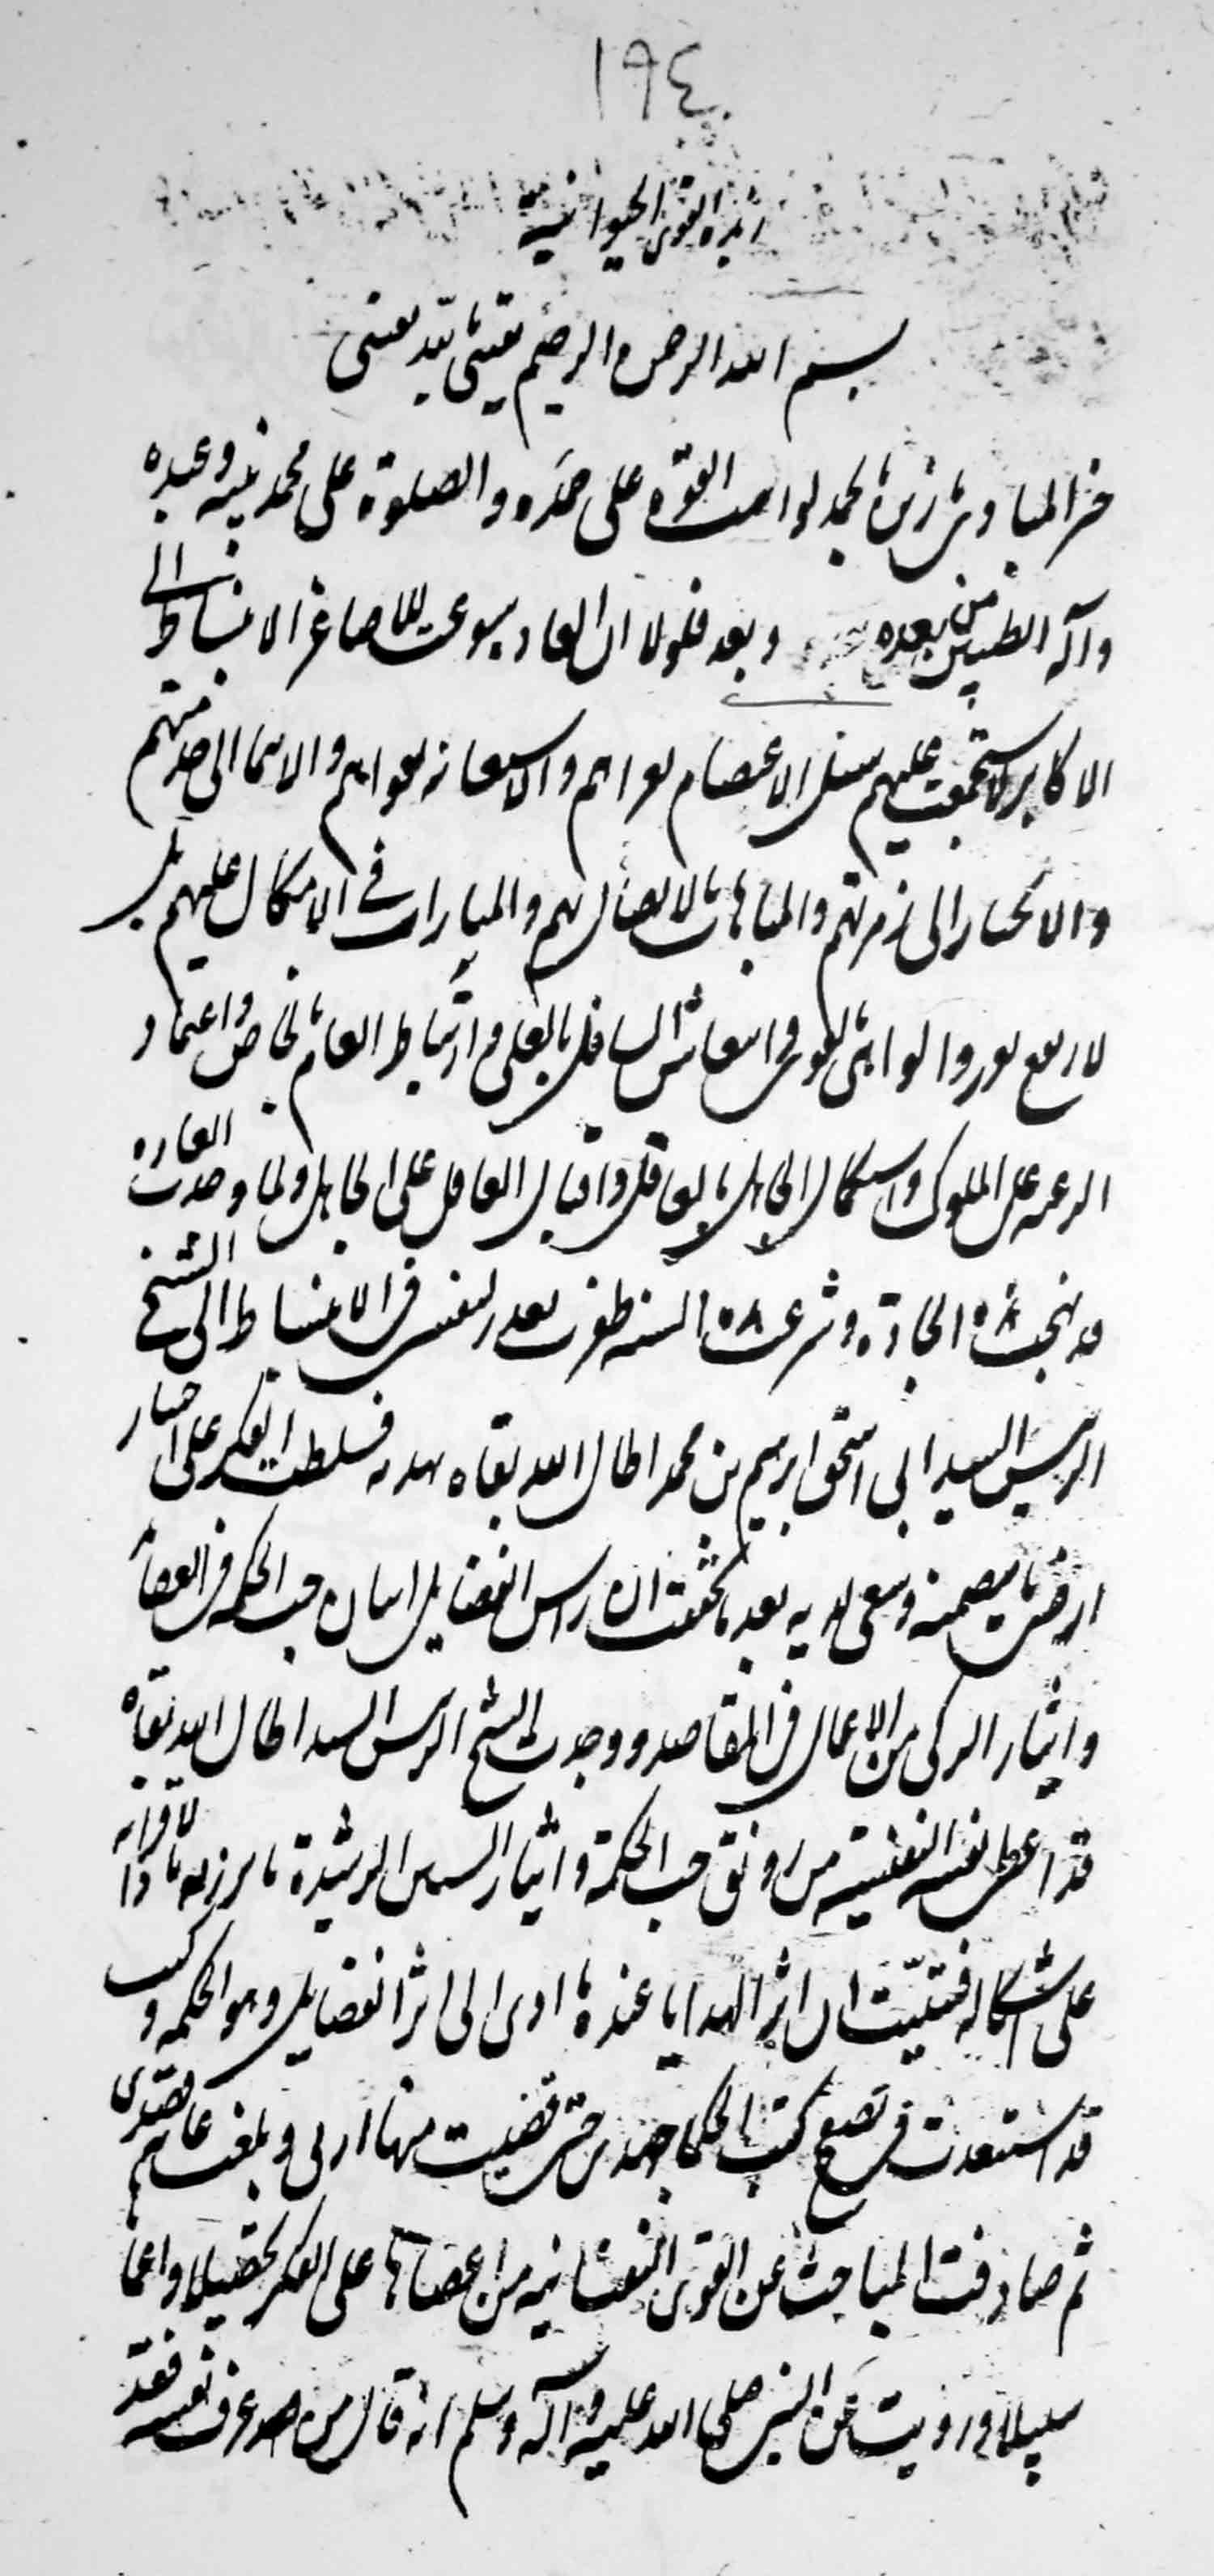 ١٩٤
القوى الحيوانية
بسم الله الرحمن الرحيم ثقتي بالله يعنى
خير المبادى ما زين بالحمد لواهب القوة على حمده والصلوة على محمد نبيه وعبده
وآله الطيبين من بعده وبعد فلولا ان العادة سوغت للاصاغر الانبساط الى
الاكابر لاستجمت عليهم سبل الاعتصام بعراهم والاستعانة بقواهم والانتماء الى خدمتهم
والانحياز الى زمرتهم والمباهات بالاتصال بهم والمبارات فى الاتكال عليهم بل
لارتفع انتعاش السافل بالعلى وارتباط العام بالخاص واعتماد
الرعية على الملوك واستكمال الجاهل بالعاقل واقبال العاقل على الجاهل ولما وجدت العادة
قد نهجت هذه الجادة وشرعت هذه السنة ظفرت بعذر لنفسى فى الانبساط الى الشيخ
الرئيس السيد ابى اسحق ابرهيم بن محمد اطال الله بقاه بهدية فسلطت الفكر على اختيار
ارضى ما يتضمنه وسعى لديه بعد ما تحققت ان راس الفضايل اثنان حب الحكمة فى العقائد
وايثار الزكى من الاعمال فى المقاصد ووجدت الشيخ الرئيس السيد اطال الله بقاه
قد اعطى نفسه النفيسة من رونق حب الحكمة وايثار السنن الرشيدة ما برز به لاقرانه
على اشكاله فتبينت ان اثر الهدايا عنده ما ادى الى اثر الفضايل وهو الحكمة وكنت
قد استنفدت فى تصفح كتب الحكما جهدى حتى قضيت منها اربى وبلغت
ثم صادفت المباحث عن القوى النفسانية من اعصاها على الفكر تحصيلا واعما
سبيلا ورويت عن النبى صلى الله عليه وآله وسلم انه قال من عرف نفسه فقد